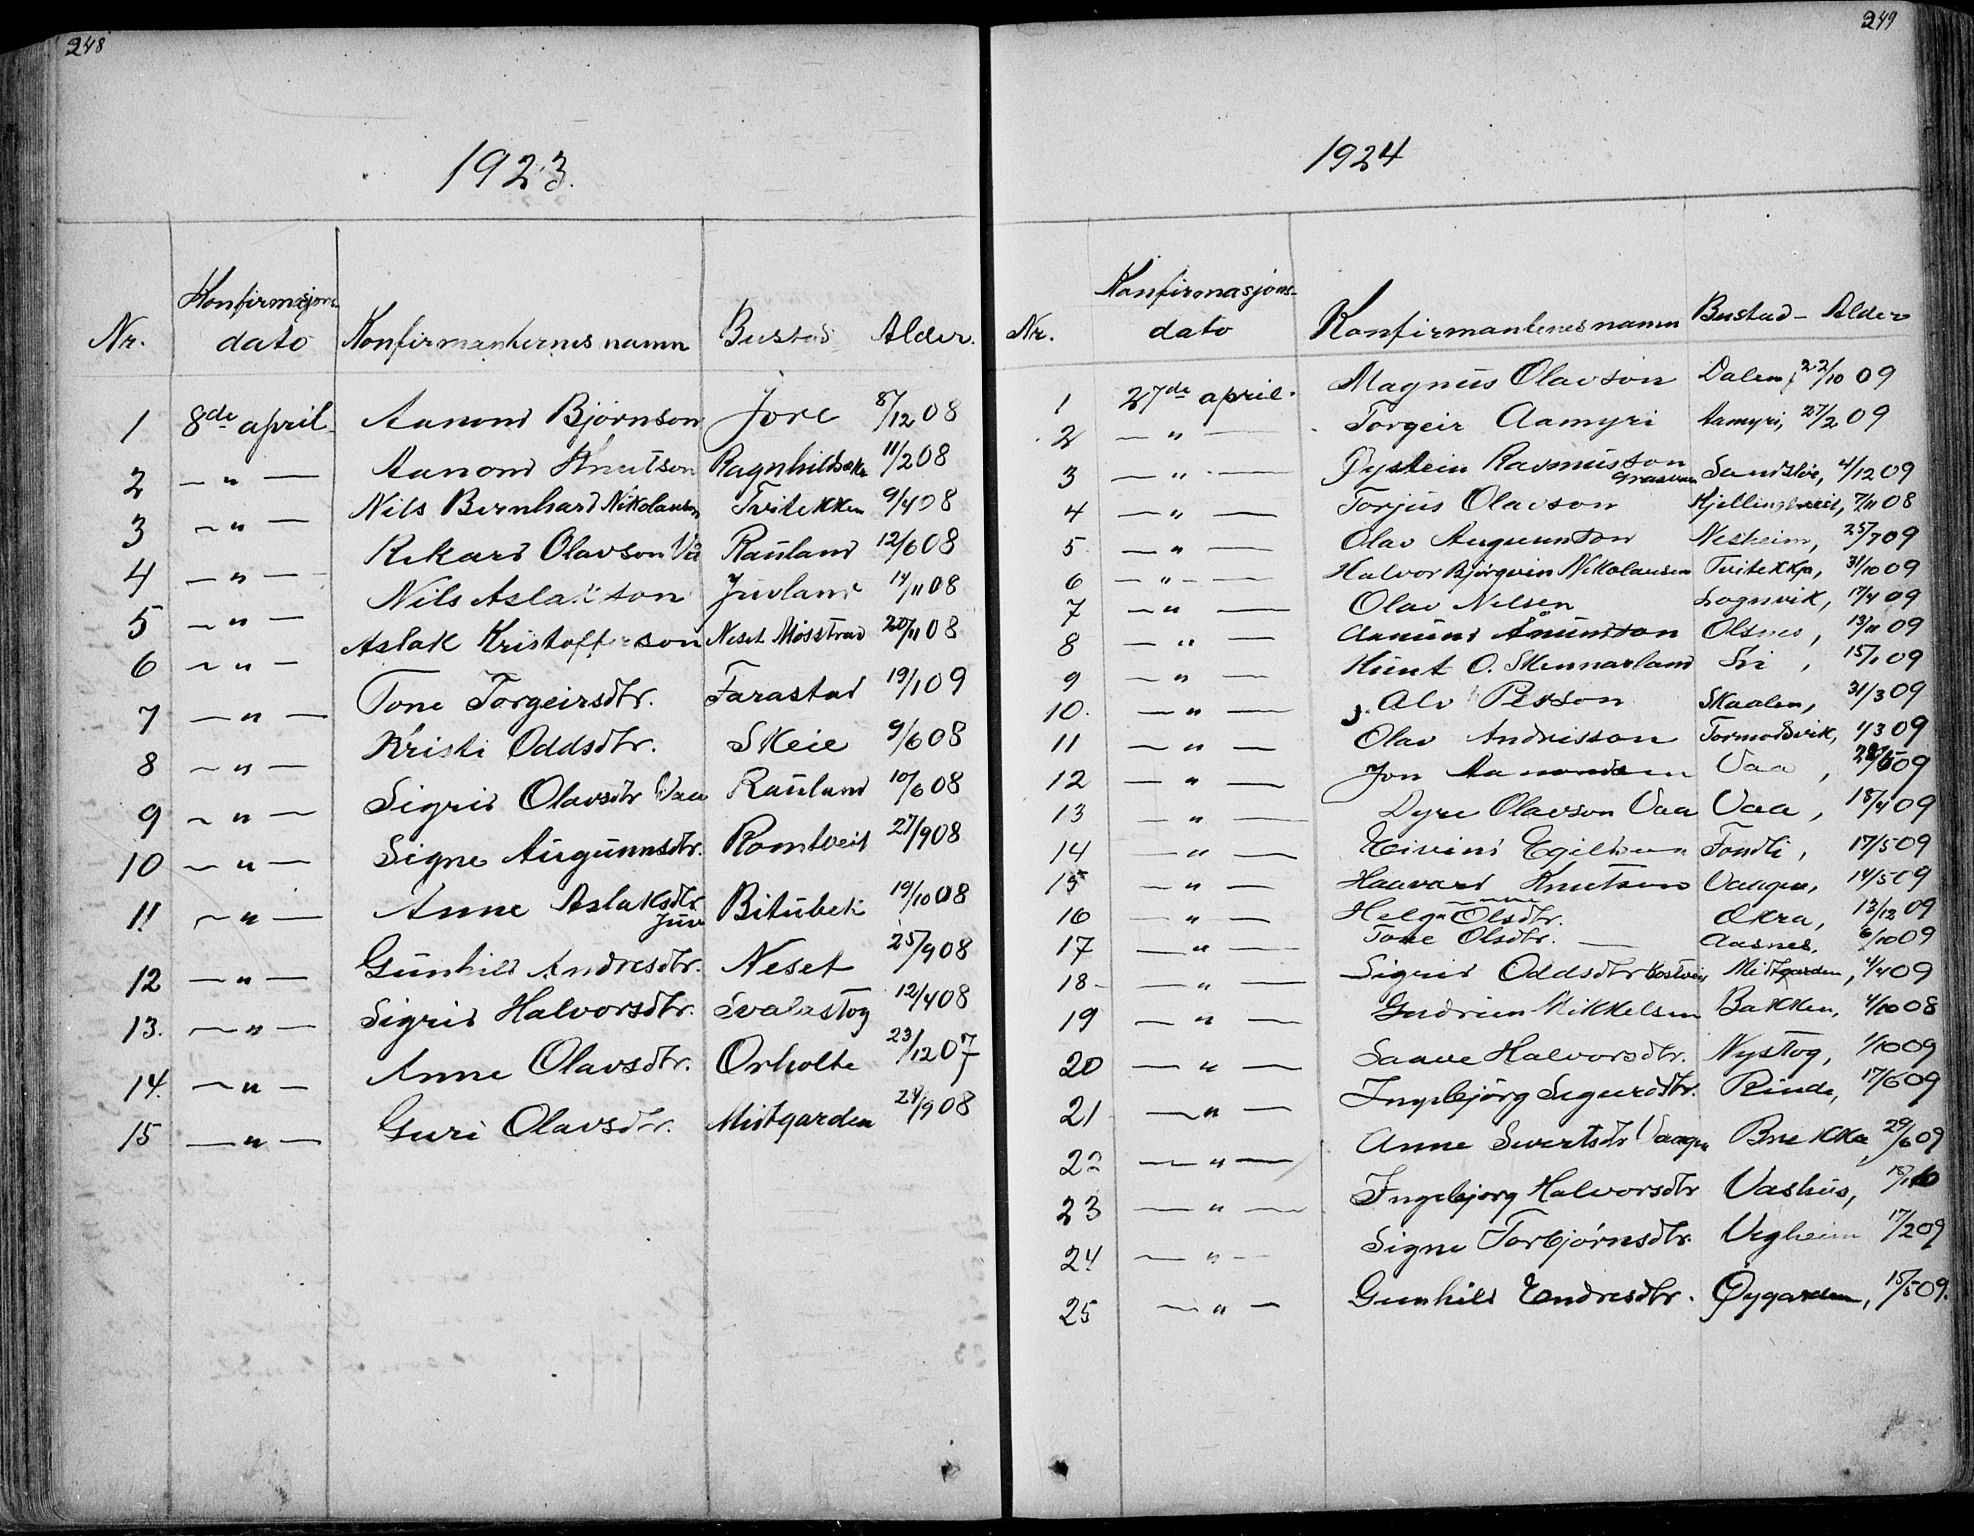 248
1923.
Nr. Konfirmasjons dato Konfirmanternes namn Bustad Alder.
1 8de april Aanond Björnson Jore 8/12 08
2 — " — Aanond Knutson Ragnhildsøkr 11/2 08
3 — " — Nils Bernhard Nikolausson Tvitekken 9/4 08
4 — " — Rikard Olavson Vå Rauland 12/6 08
5 — " — Nils Aslakson Juvland 14/11 08
6 — " — Aslak Kristofferson Neset Møsstrand 20/11 08
7 — " — Tone Torgeirsdtr. Farastad 19/1 09
8 — " — Kristi Oddsdtr. Skeie 9/6 08
9 — " — Sigrid Olavsdtr Vaa Rauland 10/6 08
10 — " — Signe Augunnsdtr. Romtveit 27/9 08
11 — " — Anne Aslaksdtr Juv Bitubek 19/10 08
12 — " — Gunhild Andresdtr. Neset 25/9 08
13. — " — Sigrid Halvorsdtr. Svalastog 12/4 08
14. — " — Anne Olavsdtr. Orholte 23/12 07
15 — " — Guri Olavsdtr. Mistgarden 24/9 08
249
1924
Nr. Konfirmasjons- dato Konfirmantenes namn Bustad - Alder
1 27de april. Magnus Olavson Dalen, 22/10 09
2 — " — Torgeir Aamyri Aamyri, 27/2 09
3 — " — Øystein Rasmusson 4/12 09
4 — " — Torjus Olavson 7/11 08
5 — " — Olav Augunnson Nesheim, 25/7 09
6 — " — Halvor Bjørgvin Nikolausen Tvitekkja, 31/10 09
7 — " — Olav Nilsen Lognvik, 17/4 09
8 — " — Aanund Ånundson Olsnes, 13/11 09
9 — " — Knut O. Skinnarland Li, 15/1 09
10. — " — Alv Person Skaalen, 31/3 09
11 — " — Olav Andrisson Tormodsvik, 1/3 09
12 — " — Jon Aanondsen Vaa, 09
13 — " — Dyre Olavson Vaa Vaa, 18/4 09
14 — " — Eivind Egilson Fondli, 17/5 09
15 — " — Haavard Knutson Vaagen, 14/5 09
16 — " — Helga Olsdtr. Økra, 13/12 09
17 — " — Tone Olsdtr. — Aasnes, 6/10 09
18- — " — Sigrid Oddsdtr Kostveit Mistgarden, 4/4 09
19 — " — Gudrun Mikkelsen Bakken, 4/10 08
20 — " — Saave Halvorsdtr. Nystog, 1/10 09
21 — " — Ingebjörg Sigurdsdtr. Rinde, 17/6 09
22 — " — Anne Sivertsdtr Vaagen Brekka, 29/6 09
23 — " — Ingebjörg Halvorsdtr Vashus, 18/1 10
24 — " — Signe Torbjörnsdtr. Vegheim 17/2 09
25 — " — Gunhild Endresdtr. Øygarden, 15/5 09.